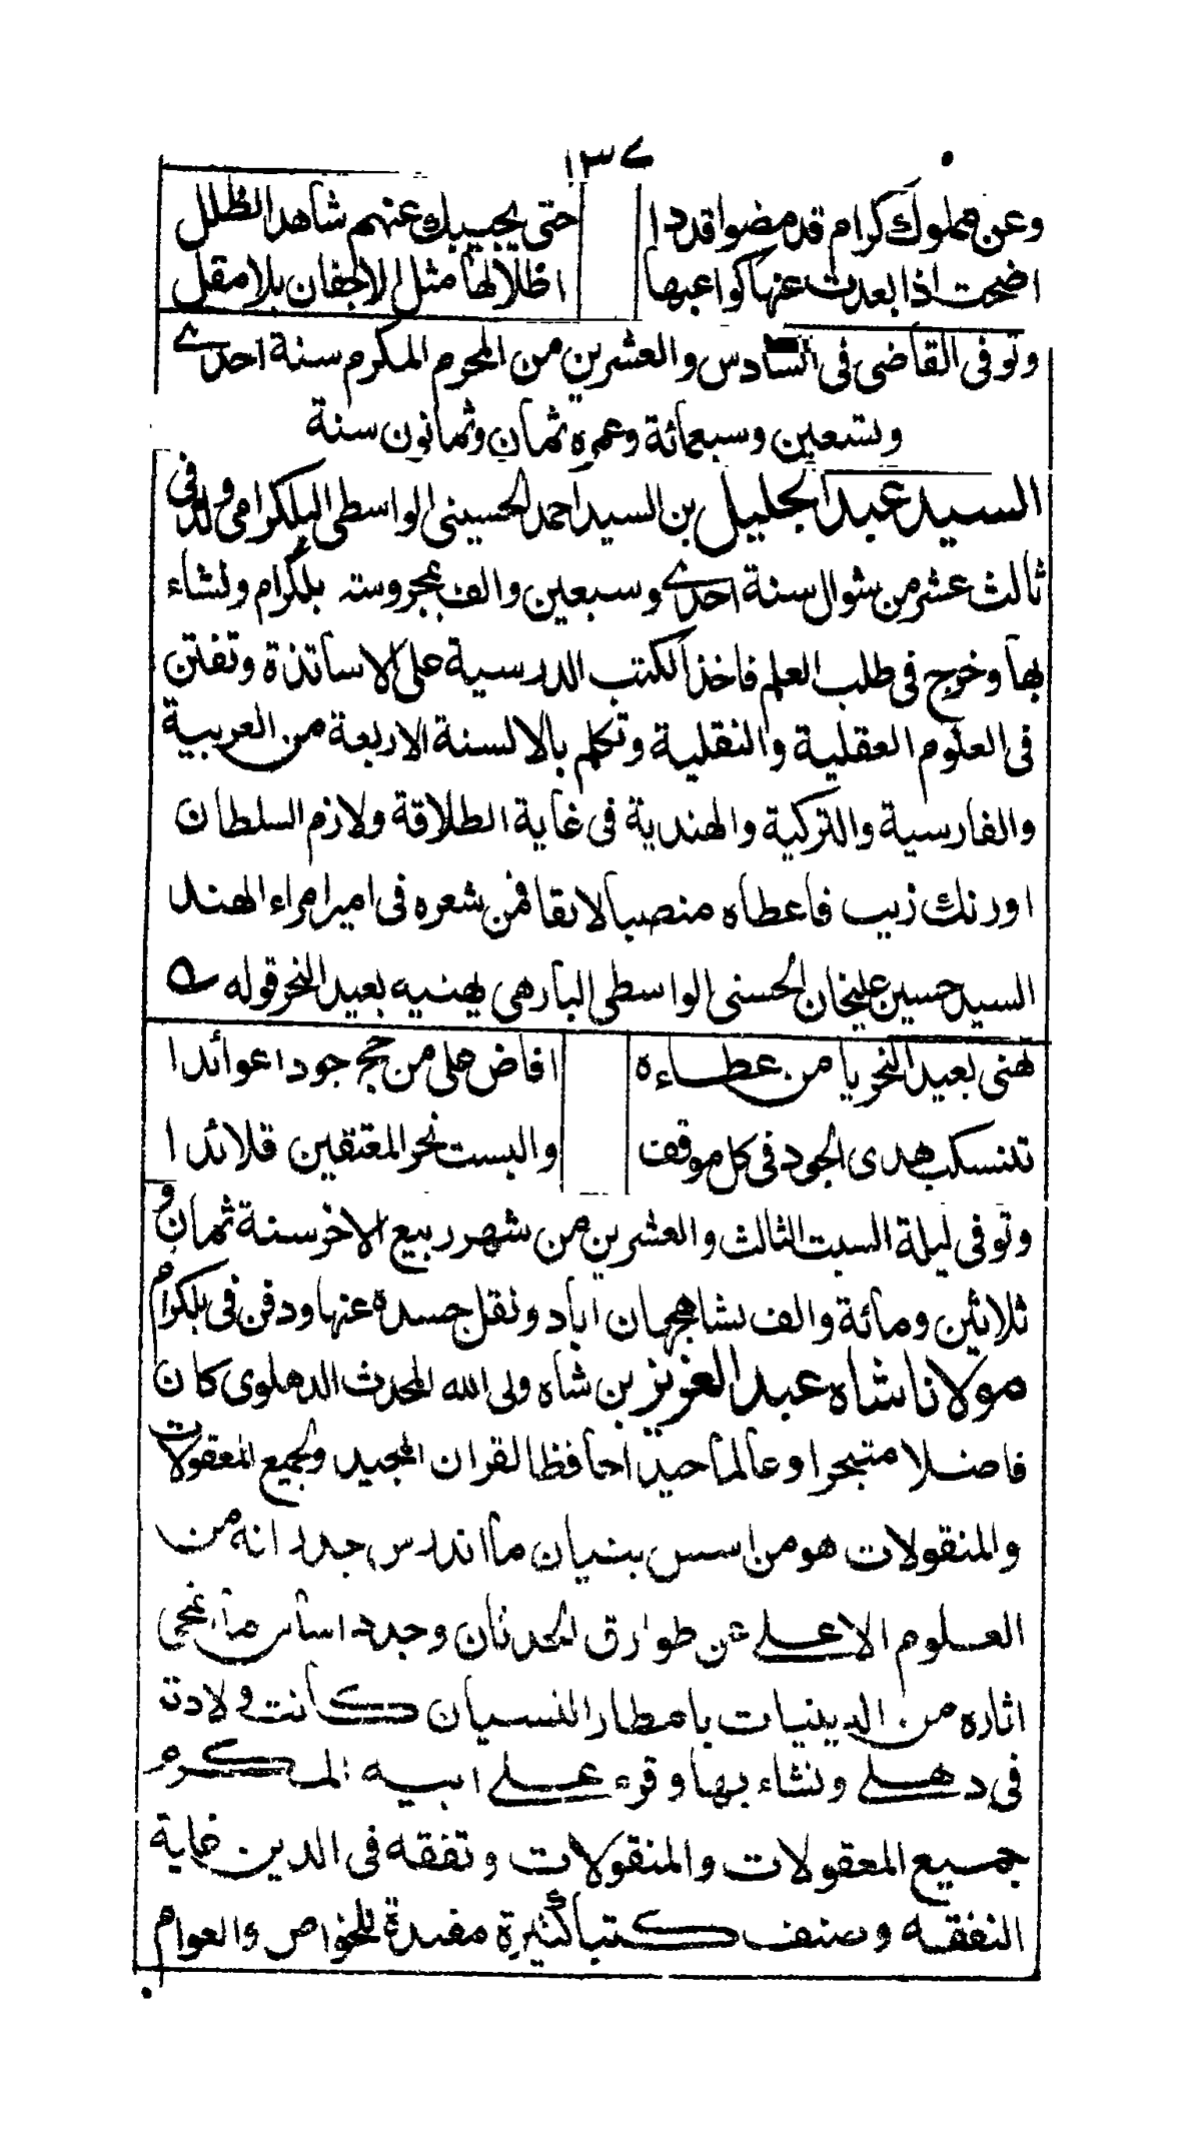 ١٣٧
وعن ملوك كرام قد مضوا قددا حتى يجيبك عنهم شاهد الطلل
اضحت اذا بعدت عنها كواعبها اظلالها مثل الاجفان بلا مقل
وتوفى القاضى فى السادس والعشرين من المحرم المكرم سنة احدے
وتسعين وسبعمائة وعمره ثمان وثمانون سنة
السيد عبد الجليل بن السيد احمد الحسينى الواسطى البلكرامى ولد فى
ثالث عشر من شوال سنة احدے وسبعين والف بمحروسته بلكرام ونشاء
بها وخرج فى طلب العلم فاخذ الكتب الدرسية على الاساتذة وتفنن
فى العلوم العقلية والنقلية وتكلم بالالسنة الاربعة من العربية
والفارسية والتركية والهندية فى غاية الطلاقة ولازم السلطان
اورنك زيب فاعطاه منصبا لائقا فمن شعره فى امير امراء الهند
السيد حسين عليخان الحسنى الواسطى البارهى يهنيه بعيد النحر قوله ؎
تهنى بعيد النحر يا من عطاءه افاض على من حج جودا عوائدا
تنسكب هدى الجود فى كل موقف والبست نحر المعتقين قلائدا
وتوفى ليلة السبت الثالث والعشرين من شهر ربيع الاخر سنة ثمان و
ثلاثين ومائة والف بشاهجهان آباد ونقل جسده عنها ودفن فى بلكرام
مولانا شاه عبد العزيز بن شاه ولى الله المحدث الدهلوى كان
فاضلا متبحرا وعالما جيدا حافظا لقران المجيد ولجميع المعقولات
والمنقولات هو من اسس بنيان ما اندرس جدرانه من
العلوم الاعلى عن طوارق الحدثان وجدد اساس ما انمحى
اثاره من الدينيات بامطار النسيان كانت ولادته
فى دهلى ونشاء بها وقرء على ابيه المكرم
جميع المعقولات والمنقولات وتفقه فى الدين غاية
التفقه وصنف كتبا كثيرة مفيدة للخواص والعوام